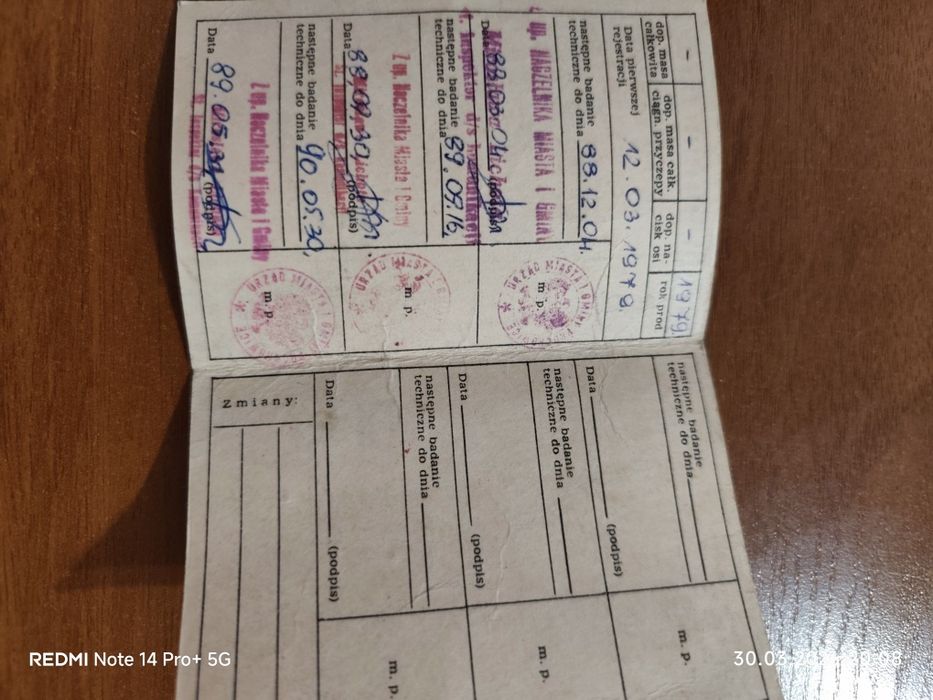 dop. masa całkowita
dop. masa całk. ciągn. przyczepy
dop. nacisk osi
rok prod
-
-
-
1979
Data pierwszej rejestracji 12.03.1979.
następne badanie techniczne do dnia 88.12.04.
Z up. NACZELNIKA MIASTA I GMINY
Data 88.03.04
(podpis)
m. p.
URZĄD MIASTA I GMINY
następne badanie techniczne do dnia 89.09.16,
Z up. Naczelnika Miasta i Gminy
Data 88.09.30
(podpis)
m. p.
URZĄD MIASTA I G
następne badanie techniczne do dnia 90.05.30,
Z up. Naczelnika Miasta i Gminy
Data 89.05.31
(podpis)
m. p.
URZĄD MIASTA I
następne badanie
techniczne do dnia
Data
(podpis)
m. p.
następne badanie
techniczne do dnia
Data
(podpis)
m. p.
następne badanie
techniczne do dnia
Data
(podpis)
m. p.
Zmiany:
REDMI Note 14 Pro+ 5G